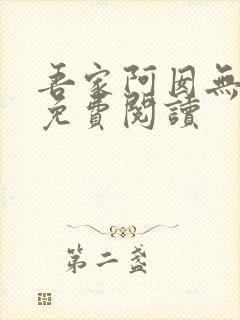 吾家阿囡無
免費閱讀
第二盞